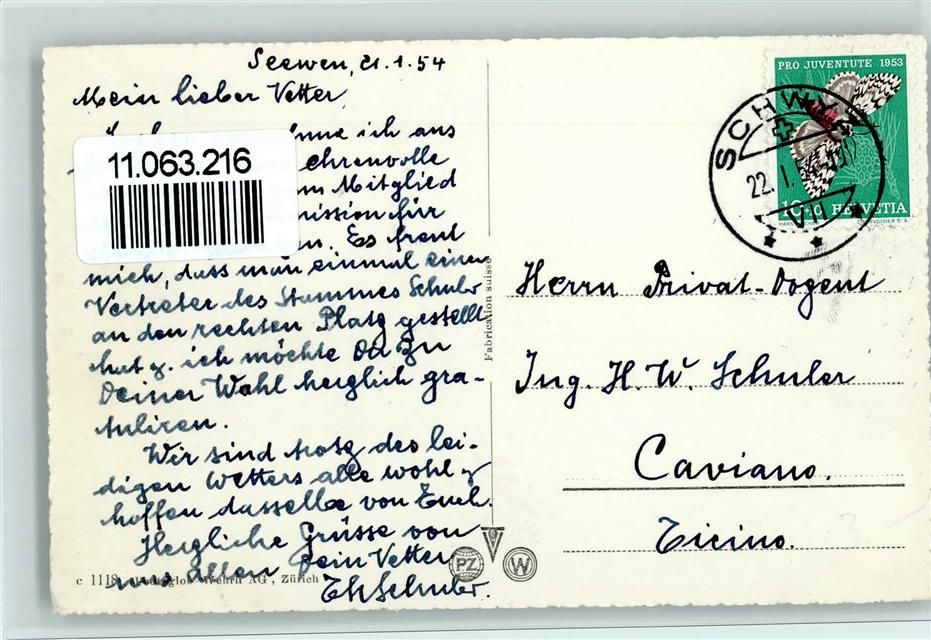 Seewen, 21.1.54
Mein lieber Vetter,
ich aus
11.063.216
ehrenvolle
Mitglied
mission für
Es freut
mich, dass man einmal einen
Vertreter des Stammes Schuler
an den rechten Platz gestellt
hat u. ich möchte Dir zu
Deiner Wahl herzlich gra-
tuliren.
Wir sind trotz des lei-
digen Wetters alle wohl u
hoffen dasselbe von Euch.
Herzliche Grüsse von
uns allen Dein Vetter
Th Schuler.
c 1118 Wehrli AG, Zürich
Fabrication suisse
PZ
W
PRO JUVENTUTE 1953
10+10 HELVETIA
SCHWYZ
22.I.
VII
Herrn Privat-Dozent
Ing. H. W. Schuler
Caviano.
Ticino.